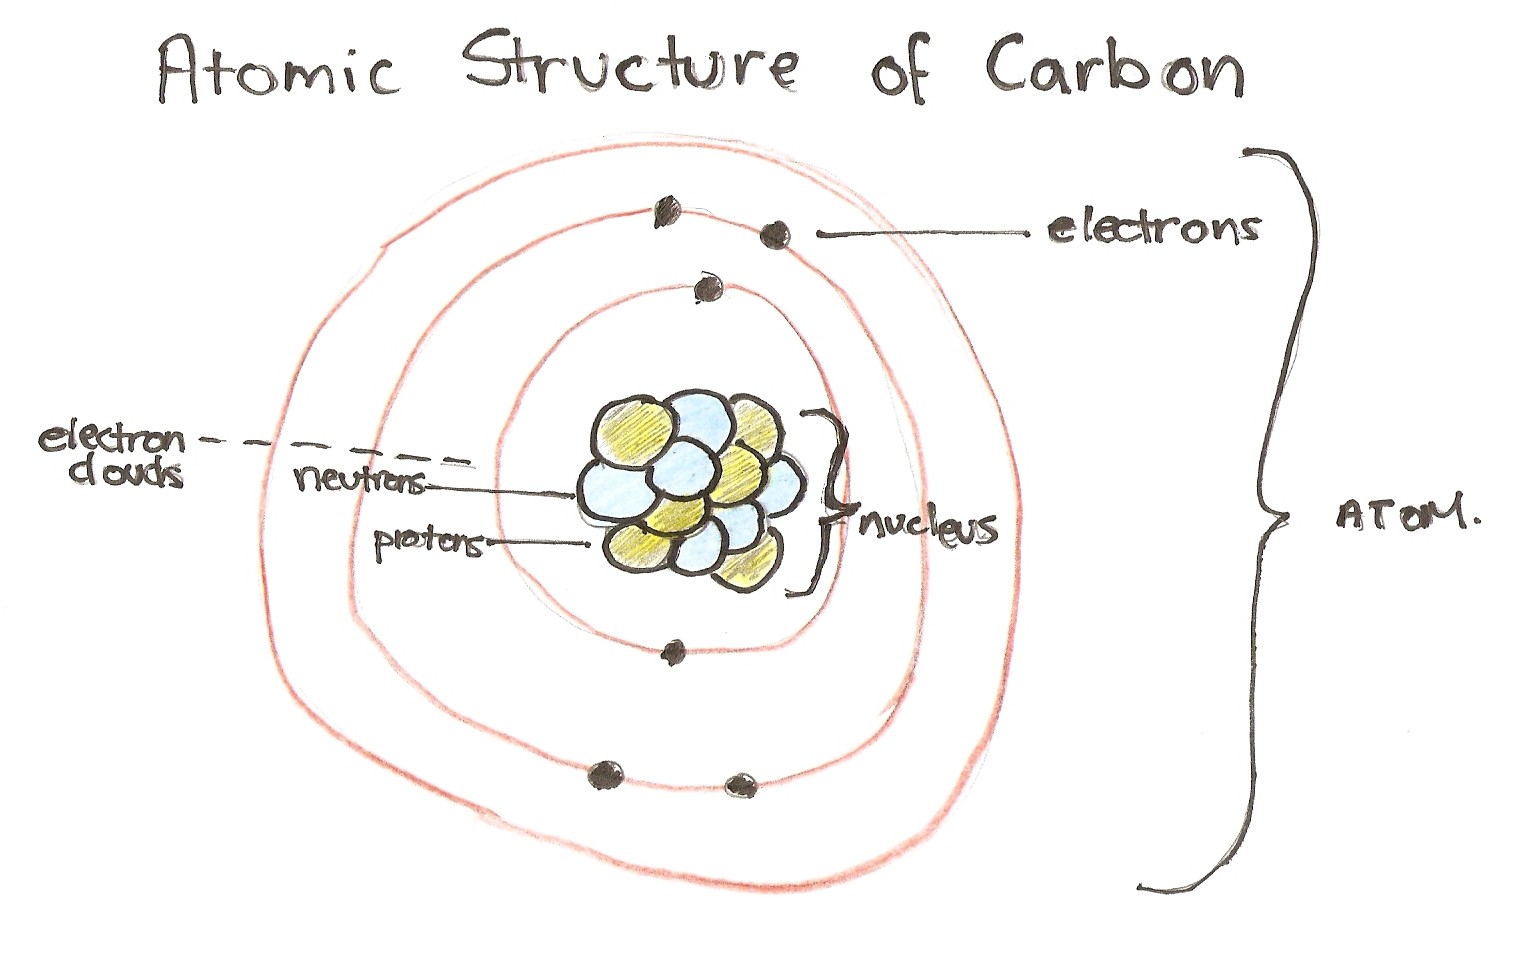 Atomic Structure of Carbon
electrons
electron
clouds
neutrons
protons
nucleus
ATOM.